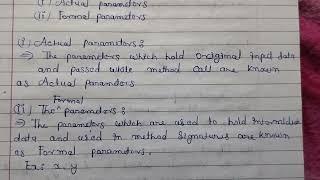 (i) Actual parameters
(ii) Formal parameters
(i) Actual parameters :
⇒ The parameters which hold original input data
and passed while method call are known
as Actual parameters
Formal
(ii) The parameters :
⇒ The parameters which are used to hold intermediate
data and used in method signatures are known
as Formal parameters.
Ex: x, y